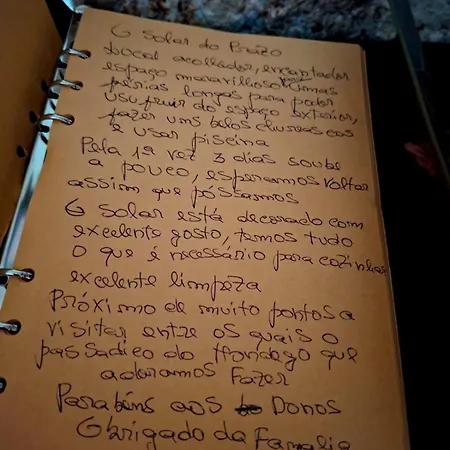 O Solar do Prazo
Local acolhador, encantador
espaço maravilhoso para umas
férias longas para poder
usufruir do espaço exterior,
fazer uns belos churrascos
e usar piscina
Pela 1ª vez 3 dias soube
a pouco, esperamos voltar
assim que póssamos
O Solar está decorado com
excelente gosto, temos tudo
o que é necessário para cozinhar
excelente limpeza
Próximo de muito pontos a
visitar entre os quais o
passadiço do Mondego que
adoramos fazer
Parabéns aos Donos
Obrigado da Familia